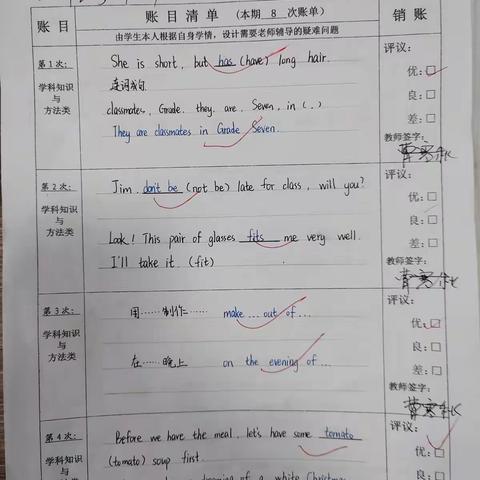 账目 账目清单 (本期 8 次账单) 销账
由学生本人根据自身学情，设计需要老师辅导的疑难问题
第1次：
学科知识
与
方法类
She is short, but has (have) long hair.
连词成句
classmates, Grade, they, are, Seven, in (.)
They are classmates in Grade Seven.
评议：
优：□
良：□
差：□
教师签字：
第2次：
学科知识
与
方法类
Jim, don't be (not be) late for class, will you?
Look! This pair of glasses fits me very well.
I'll take it. (fit)
评议：
优：□
良：□
差：□
教师签字：
第3次：
学科知识
与
方法类
用……制作…… make...out of...
在……晚上 on the evening of...
评议：
优：□
良：□
差：□
教师签字：
第4次：
学科知识
与
方法类
Before we have the meal, let's have some tomato
(tomato) soup first.
of a white Christmas
评议：
优：□
良：□